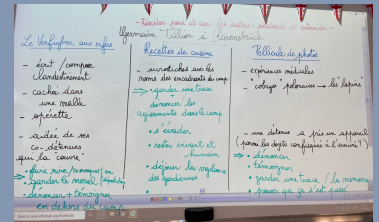 - Résister pour et avec les autres : solidarité et entraide -
Germaine Tillion à Ravensbrück
Le Verfügbar aux enfers
- écrit / composé
clandestinement
- caché dans
une malle
- opérette
- aidée de ses
co-détenues
qui la couvre
→ faire rire / se moquer / en
- garder le moral
- dénoncer + témoigner
en dehors du camp
Recettes de cuisine
- acrostiches avec les
noms des encadrants du camp
→ • garder une trace
+
dénoncer les
agissements dans le camp
• s'évader
• rester vivant et
humain
• déjouer la vigilance
des gardiennes
Pellicule de photos
- expériences médicales
- "cobayes" polonaises → les "lapins"
- une détenue a pris un appareil
(parmi les objets confisqués à l'arrivée ?)
→ • dénoncer
• témoigner
• garder une trace / la mémoire
• prouver que ça s'est passé